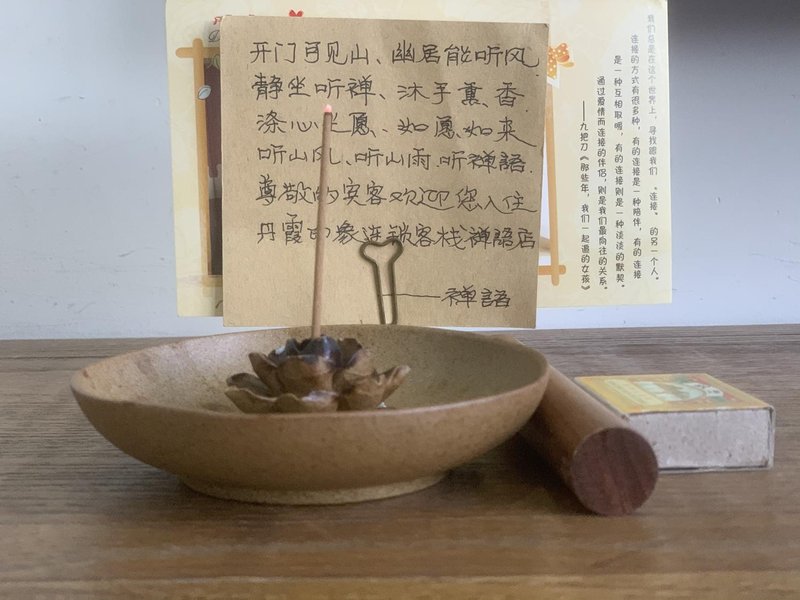 开门可见山、幽居能听风
静坐听禅、沐手薰、香
涤心上愿、如愿如来
听山风、听山雨、听禅語.
尊敬的宾客欢迎您入住
丹霞印象连锁客栈禅語店
——禅語
我们总是在这个世界上，寻找跟我们“连接”的另一个人。
连接的方式有很多种，有的连接是一种陪伴，有的连接
是一种互相取暖，有的连接则是一种淡淡的默契。
通过爱情而连接的伴侣，则是我们最向往的关系。
——九把刀《那些年，我们一起追的女孩》